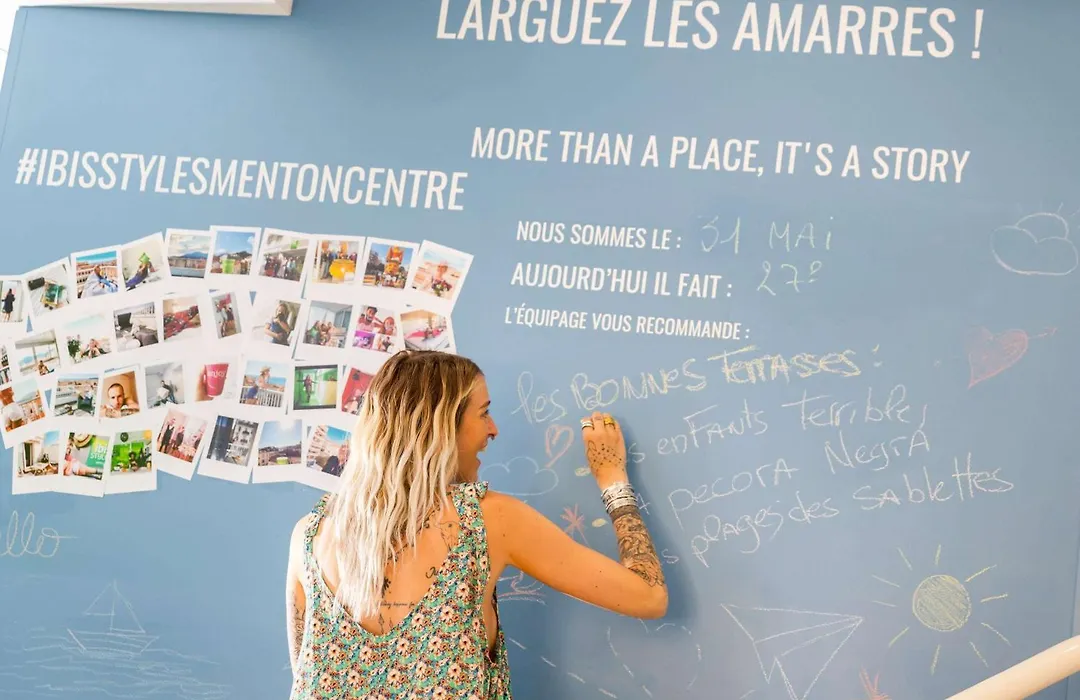 LARGUEZ LES AMARRES !
MORE THAN A PLACE, IT'S A STORY
#IBISSTYLESMENTONCENTRE
NOUS SOMMES LE : 31 MAi
AUJOURD'HUI IL FAIT : 27º
L'ÉQUIPAGE VOUS RECOMMANDE :
les BONNES Terrasses :
enfants terribles
pecora Negra
plages des sablettes
enjoy
ello